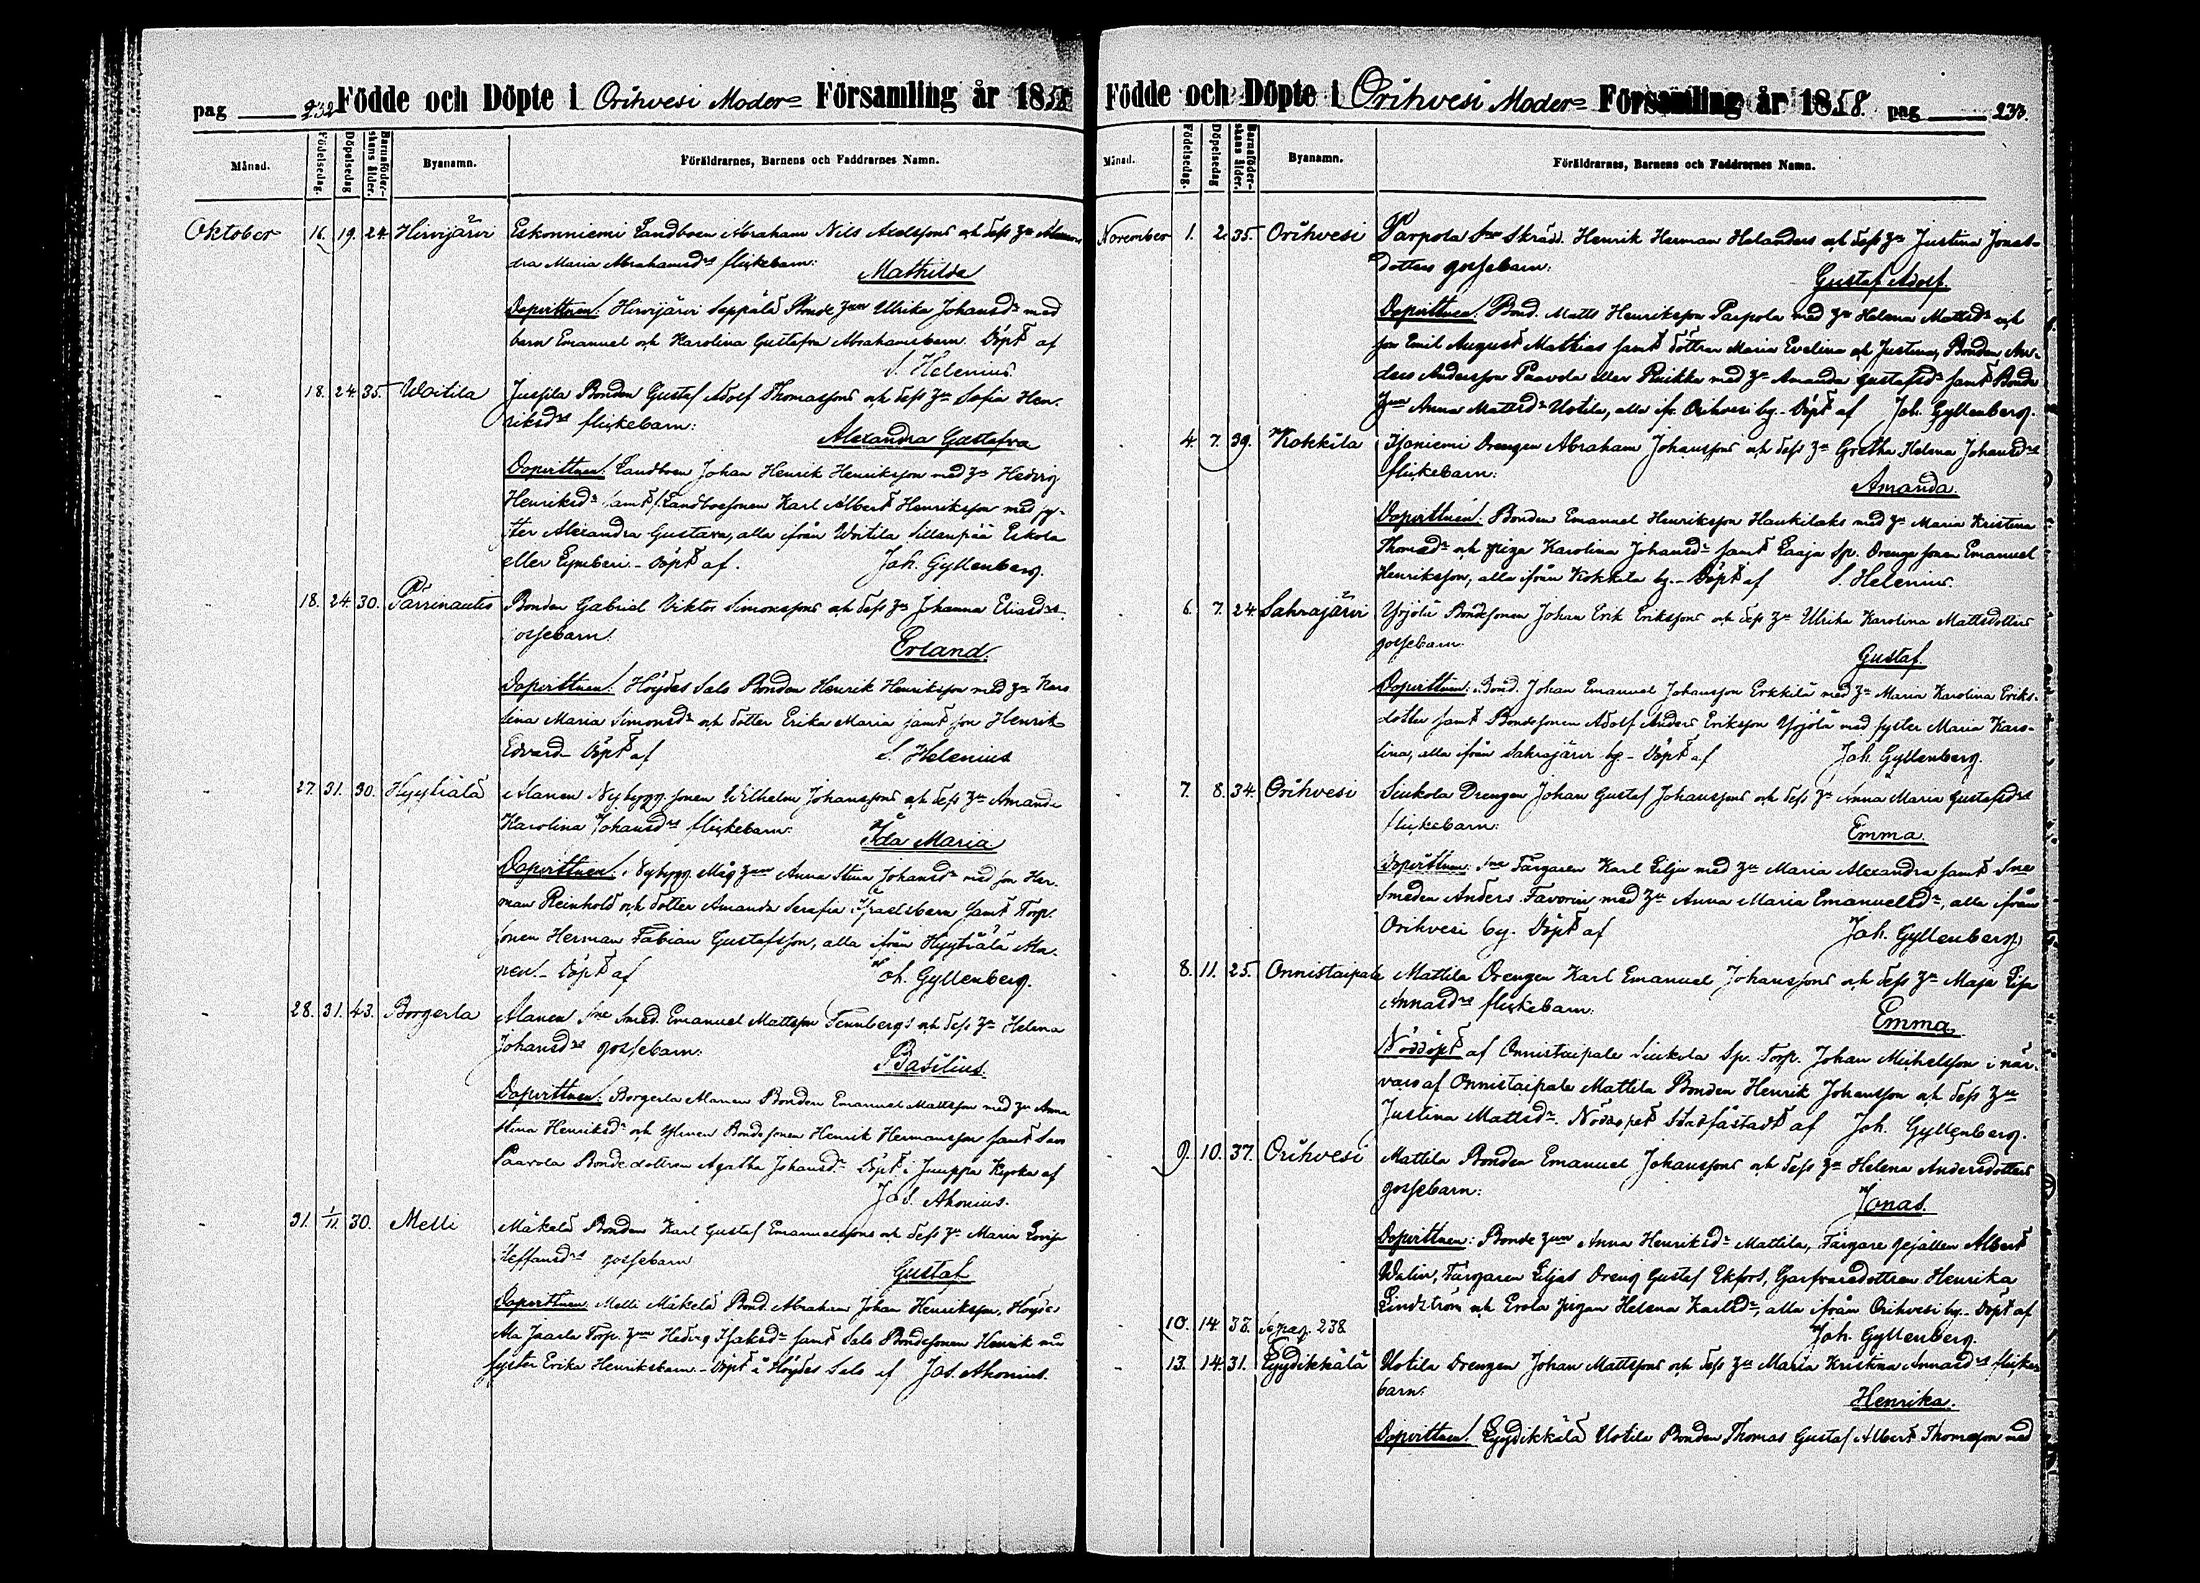 pag 232 Födde och Döpte i Orihvesi Moder= Församling år 1858
Månad. Födelsedag. Döpelsedag Barnaföderskans ålder. Byanamn. Föräldrarnes, Barnens och Faddrarnes Namn.
Oktober 16. 19. 24. Hirvijärvi Eskonniemi Landboen Abraham Nils Axelssons och dess hu
dra Maria Abrahamsdrs flickebarn: Mathilda
Dopvittnen: Hirvijärvi Seppälä Bonde hun Ulrika Johansdr med
barn Emanuel och Karolina Gustafva Abrahamsbarn. Döpt af
S. Helenius
- 18. 24. 35. Woitila Jussila Bonden Gustaf Adolf Thomassons och dess hu Sofia Hen-
riksdrs flickebarn: Alexandra Gustafva
Dopvittnen: Landboen Johan Henrik Henriksson med hu Hedvig
Henriksdr samt Landbosonen Karl Albert Henriksson med sy-
ster Alexandra Gustava, alla ifrån Woitila Sillanpää Eskola
eller . Döpt af. Joh. Gyllenberg.
- 18. 24. 30. Pärrinautio Bonden Gabriel Viktor Simonssons och dess hu Johanna Eliasdrs
gossebarn: Erland.
Dopvittnen: Höydes Salo Bonden Henrik Henriksson med hu Karo
lina Maria Simonsdr och dotter Erika Maria samt son Henrik
Edvard. Döpt af S. Helenius
- 27. 31. 30. Hyytiälä Alanen Nybygg. sonen Wilhelm Johanssons och dess hu Amanda
Karolina Johansdrs flickebarn: Ida Maria
Dopvittnen: Nybygg. Måg hun Anna Stina Johansdr med son Her-
man Reinhold och dotter Amanda Serafia Israelsbarn samt Torp.
sonen Herman Fabian Gustafsson, alla ifrån Hyytiälä Ala-
nen. Döpt af Joh. Gyllenberg.
- 28. 31. 43. Borgerla Alanen Sne Smed. Emanuel Mattsson Tennbergs och dess hu Helena
Johansdrs gossebarn: Basilius.
Dopvittnen: Borgerla Alanen Bonden Emanuel Mattsson med hu Anna
Stina Henriksdr och Ylinen Bondesonen Henrik Hermansson samt
Paavola Bondedottren Agatha Johansdr. Döpt i Juuppa Kyrka af
Jos. Ahonius.
- 31. 1/11 30. Melli Mäkelä Bonden Karl Gustaf Emanuelssons och dess hu Maria Lovisa
Steffansdrs gossebarn Gustaf
Dopvittnen: Melli Mäkelä Bond. Abraham Johan Henriksson, Höydes
Ala Jaarla Torp. hun Hedvig Isaksdr samt Salo Bondesonen Henrik
syster Erika Henriksbarn. Döpt i Höydes Salo af Jos. Ahonius.
Födde och Döpte i Orihvesi Moder= Församling år 1858. pag 233.
Månad. Födelsedag. Döpelsedag Barnaföderskans ålder. Byanamn. Föräldrarnes, Barnens och Faddrarnes Namn.
November 1. 2. 35. Orihvesi Parpola Sne Skrädd. Henrik Herman Helanders och dess hu Justina Jonas-
dotters gossebarn: Gustaf Adolf.
Dopvittnen: Bond. Matts Henriksson Parpola med hu Helena Mattsdr och
son Emil August Mathias samt döttrar Maria Evelina och Justina, Bonden An-
ders Andersson Paavola eller Punkka med hu Amanda Gustafsdr samt Bonde
hun Anna Mattsdr Uotila, alla ifr. Orihvesi by. Döpt af Joh. Gyllenberg.
- 4. 7. 39. Kokkila Isoniemi Drengen Abraham Johanssons och dess hu Gretha Helena Johansdrs
flickebarn: Amanda.
Dopvittnen: Bonden Emanuel Henriksson Haukilaks med hu Maria Kristina
Thomasdr och piga Karolina Johansdr samt Laaja Sp. Drenge sonen Emanuel
Henriksson, alla ifrån Kokkila by. Döpt af S. Helenius.
- 6. 7. 24. Sahrajärvi Yrjölä Bondesonen Johan Erik Erikssons och dess hu Ulrika Karolina Mattsdotters
gossebarn: Gustaf.
Dopvittnen: Bond. Johan Emanuel Johansson Erkkilä med hu Maria Karolina Eriks-
dotter samt Bondesonen Adolf Anders Eriksson Yrjölä med syster Maria Karo-
lina, alla ifrån Sahrajärvi by. Döpt af Joh. Gyllenberg.
- 7. 8. 34. Orihvesi Siukola Drengen Johan Gustaf Johanssons och dess hu Anna Maria Gustafsdrs
flickebarn: Emma.
Dopvittnen: Sne Färgaren Karl Lilja med hu Maria Alexandra samt Sne
Smeden Anders Favorin med hu Anna Maria Emanuelsdr, alla ifrån
Orihvesi by. Döpt af Joh. Gyllenberg
- 8. 11. 25. Onnistaipale Mattila Drengen Karl Emanuel Johanssons och dess hu Maja Lisa
Annasdrs flickebarn: Emma.
Nöddöpt af Onnistaipale Siukola Sp. Torp. Johan Michelsson i när-
varo af Onnistaipale Mattila Bonden Henrik Johansson och dess hu
Justina Mattsdr. Nöddopet Stadfästadt af Joh. Gyllenberg.
- 9. 10. 37. Orihvesi Mattila Bonden Emanuel Johanssons och dess hu Helena Andersdotters
gossebarn: Jonas.
Dopvittnen: Bonde hun Anna Henriksdr Mattila, Färgare gesällen Albert
Walin, Färgaren Liljas Dreng Gustaf Ekfors, Garfvaredottren Henrika
Lindström och Erola pigan Helena Karlsdr, alla ifrån Orihvesi by. Döpt af
- 10. 14. 33. Se pag. 238 Joh. Gyllenberg.
- 13. 14. 31. Eyydikkälä Uotila Drengen Johan Mattssons och dess hu Maria Kristina Annasdrs flicke-
barn: Henrika.
Dopvittnen: Eyydikkälä Uotila Bonden Thomas Gustaf Albert Thomasson med